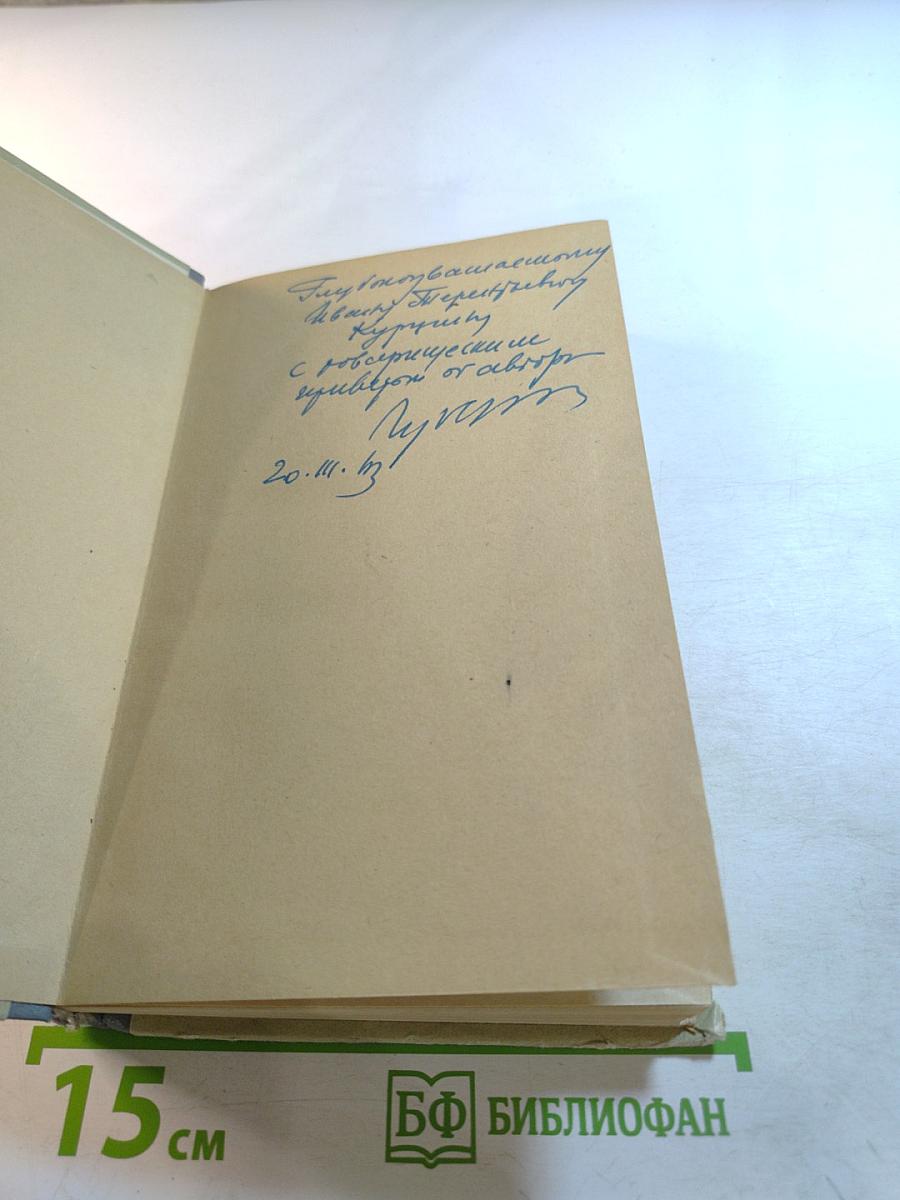 Глубокоуважаемому
Ивану Терентьевичу
с товарищеским
приветом от автора
20.III.
15 см
БФ БИБЛИОФАН